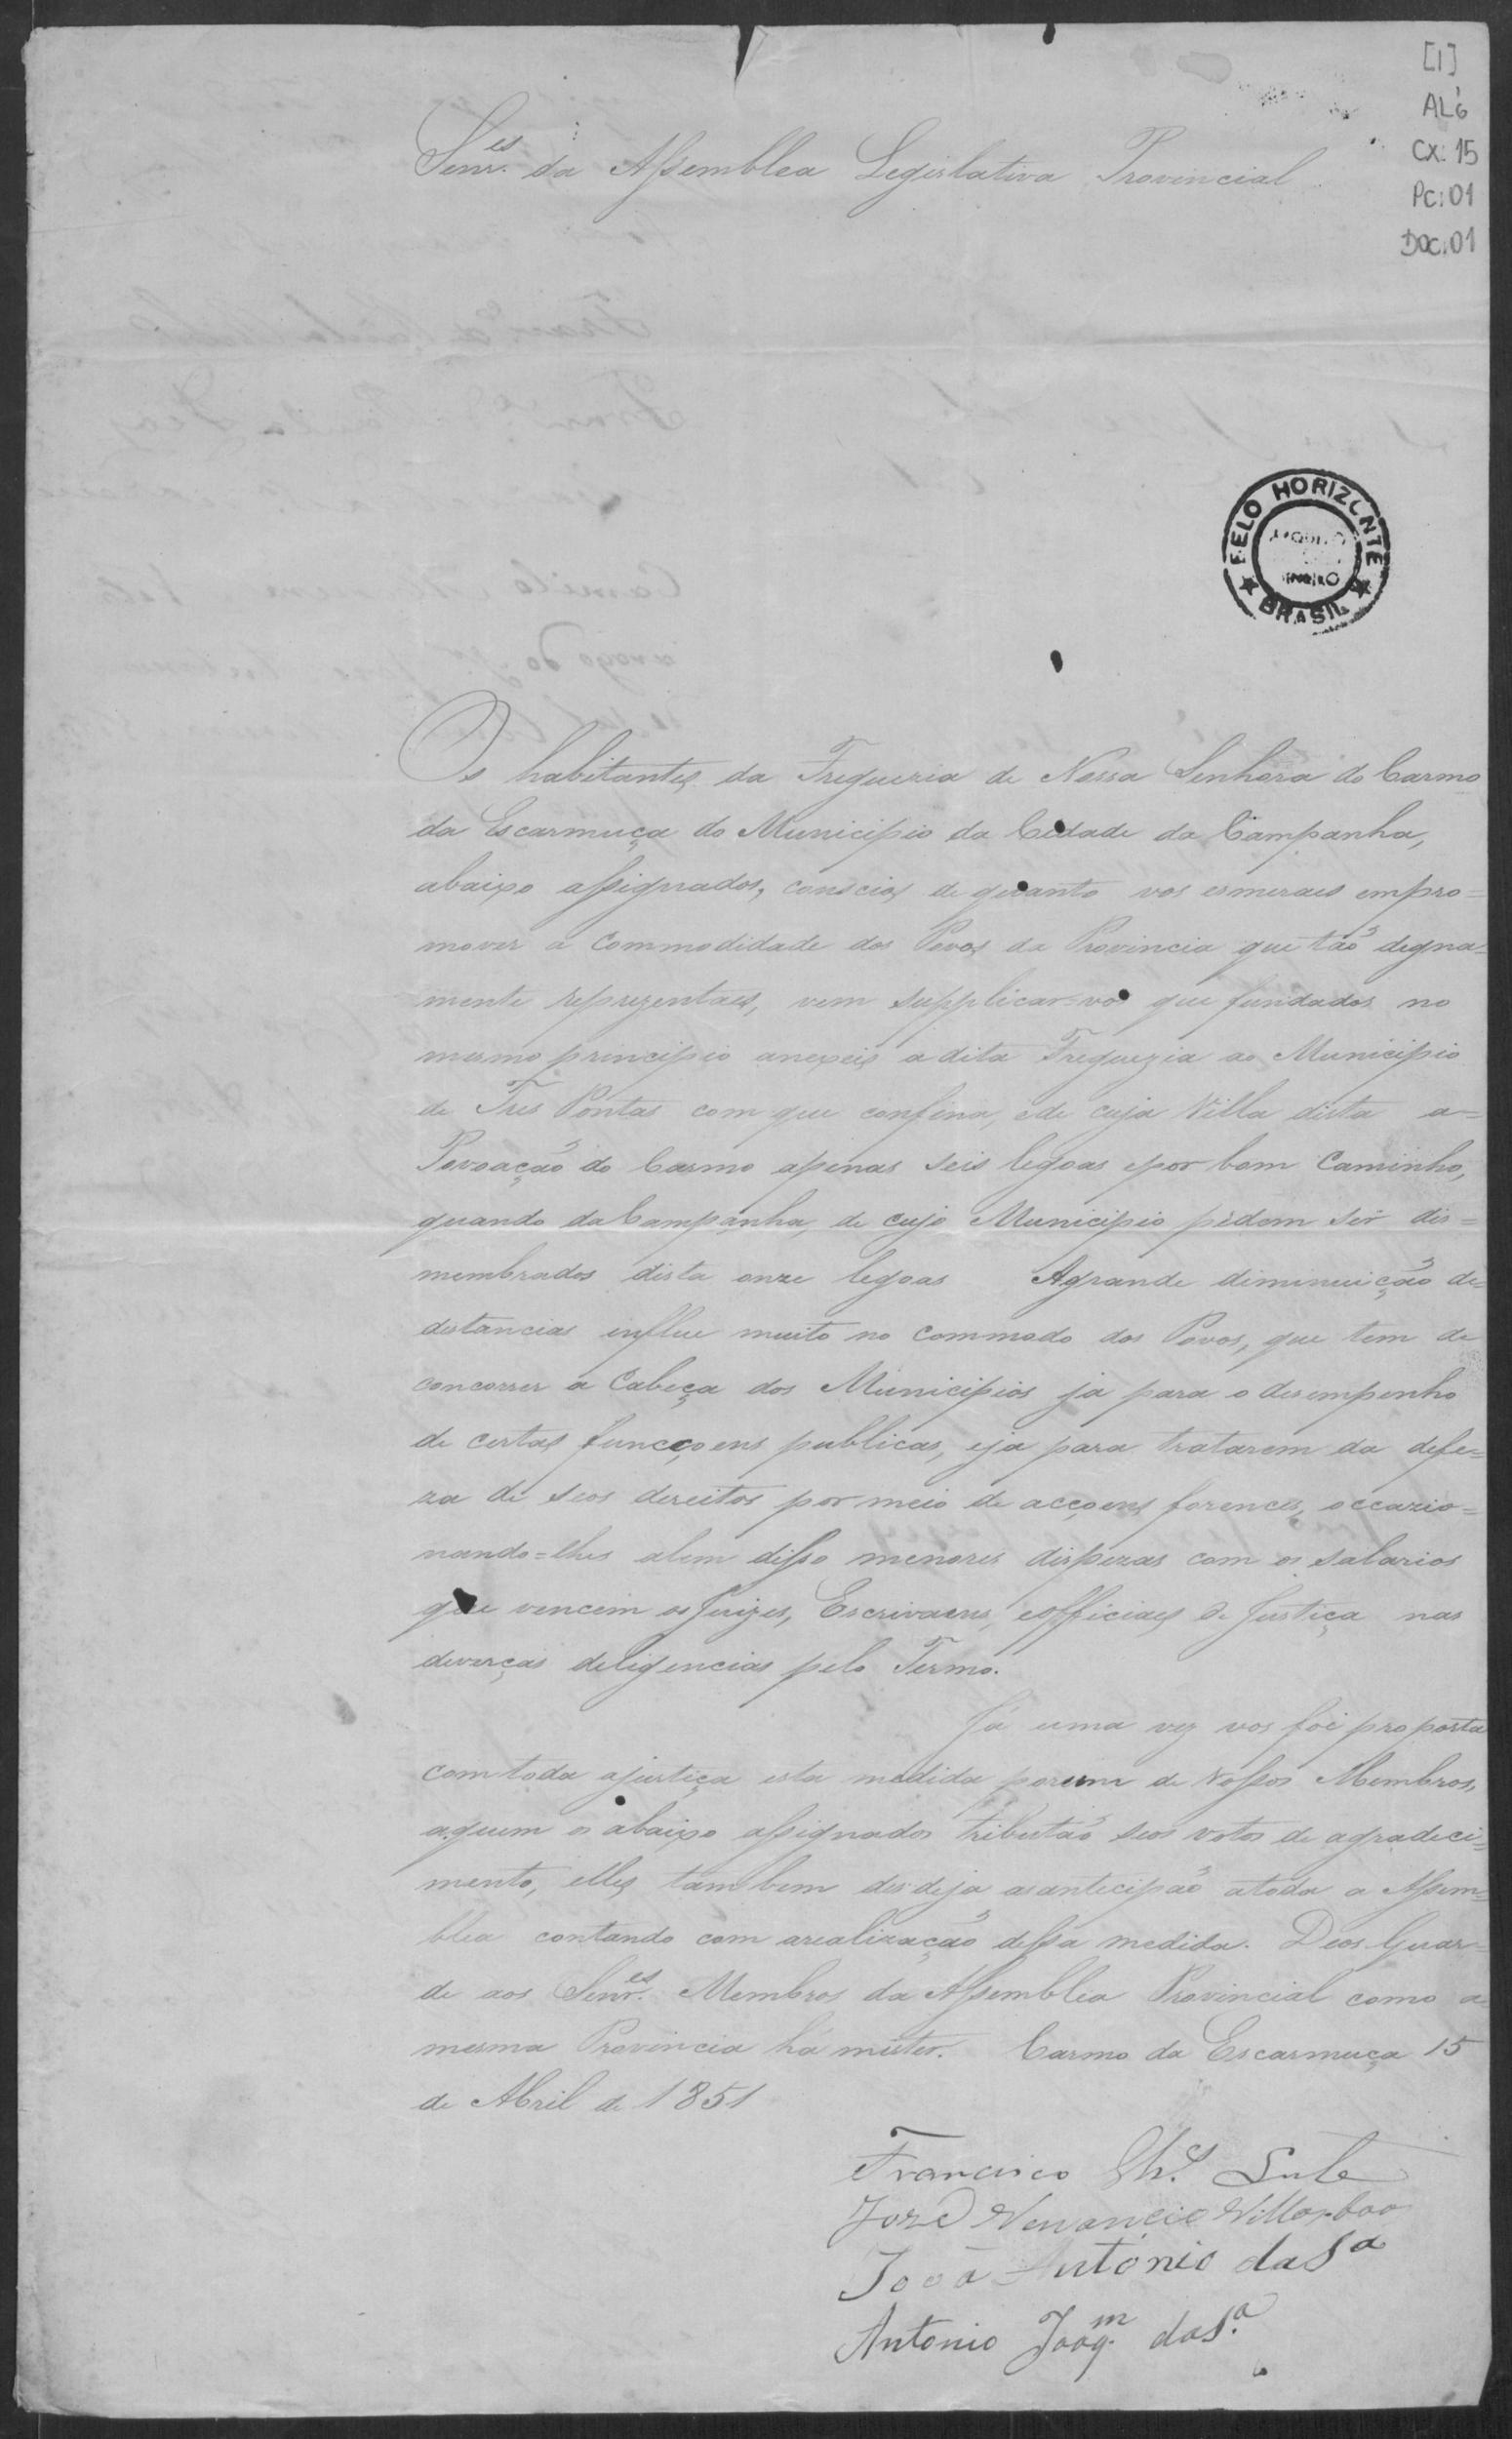 [1]
AL6
CX: 15
Pc: 01
DOC: 01
Senr.es da Assemblea Legislativa Provincial
BELO HORIZONTE
BRASIL
Os habitantes da Freguezia de Nossa Senhora do Carmo
da Escarmuça do Municipio da Cidade da Campanha,
abaixo assignados, conscios de quanto vos esmeraes empro=
mover a commodidade dos Povos da Provincia que tão degna=
mente reprezentaes, vem supplicar-vos que fundados no
mesmo principio anexeis adita Freguezia ao Municipio
de Tres Pontas com que confina, ede cuja Villa dista a=
Povoação do Carmo apenas seis legoas epor bom Caminho,
quando da Campanha, de cujo Municipio pedem ser dis=
membrados dista onze legoas Agrande diminuição de=
distancias influe muito no commodo dos Povos, que tem de
concorrer a Cabeça dos Municipios ja para o desempenho
de certas funcçoens publicas, eja para tratarem da defe=
za de seos direitos por meio de acçoens forences, occazio=
nando=lhes alem disso menores dispezas com os salarios
que vencem os Juizes, Escrivaens, eofficiaes de Justiça nas
deverças deligencias pelo Termo.
Já uma vez vos foi proposta
comtoda ajustiça esta medida porum de vossos Membros,
aquem os abaixo assignados tributão seos votos de agradeci=
mento, elles tambem desdeja asantecipão atoda a Assem=
blea contando com arealização dessa medida. Deos Guar=
de aos Senr.es Membros da Assemblea Provincial como a
mesma Provincia há mister. Carmo da Escarmuça 15
de Abril de 1851
Francisco
José Venancio Villasboas
João Antonio da S.a
Antonio Joaq.m da S.a